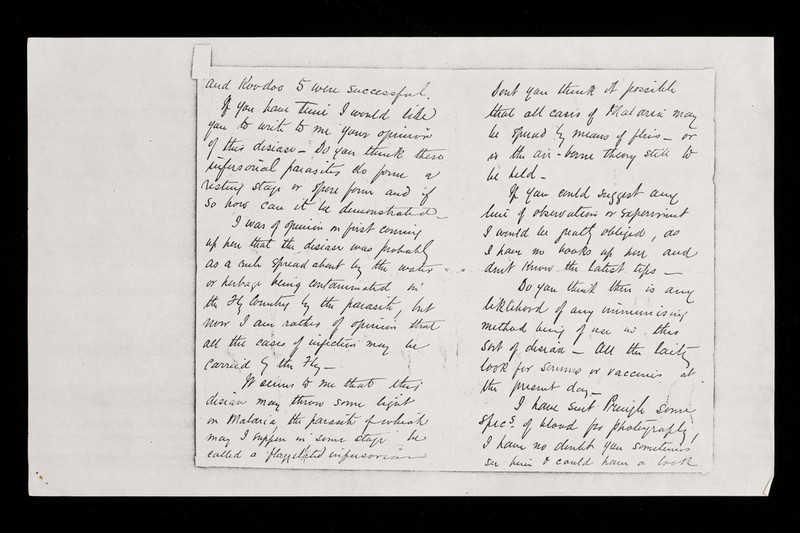 and Koodoo 5 were successful.
If you have time I would like
you to write to me your opinion
of this disease – Do you think these
infusorial parasites do form a
resting stage or spore form and if
so how can it be demonstrated –
I was of opinion on first coming
up here that the disease was probably
as a rule spread about by the water
or herbage being contaminated in
the Fly Country by the parasite, but
now I am rather of opinion that
all the cases of infection may be
carried by the Fly –
It seems to me that this
disease may throw some light
on Malaria, the parasite of which
may I suppose in some stage be
called a flagellated infusorian
Dont you think it possible
that all cases of Malaria may
be spread by means of flies – or
is the air-borne theory still to
be held –
If you could suggest any
line of observation or experiment
I would be greatly obliged, as
I have no books up here and
don't know the latest tips –
Do you think there is any
likelihood of any immunising
method being of use in this
sort of disease – All the laity
look for serums or vaccines at
the present day –
I have sent Pringle some
specs. of blood for photography,
I have no doubt you sometimes
see him & could have a look